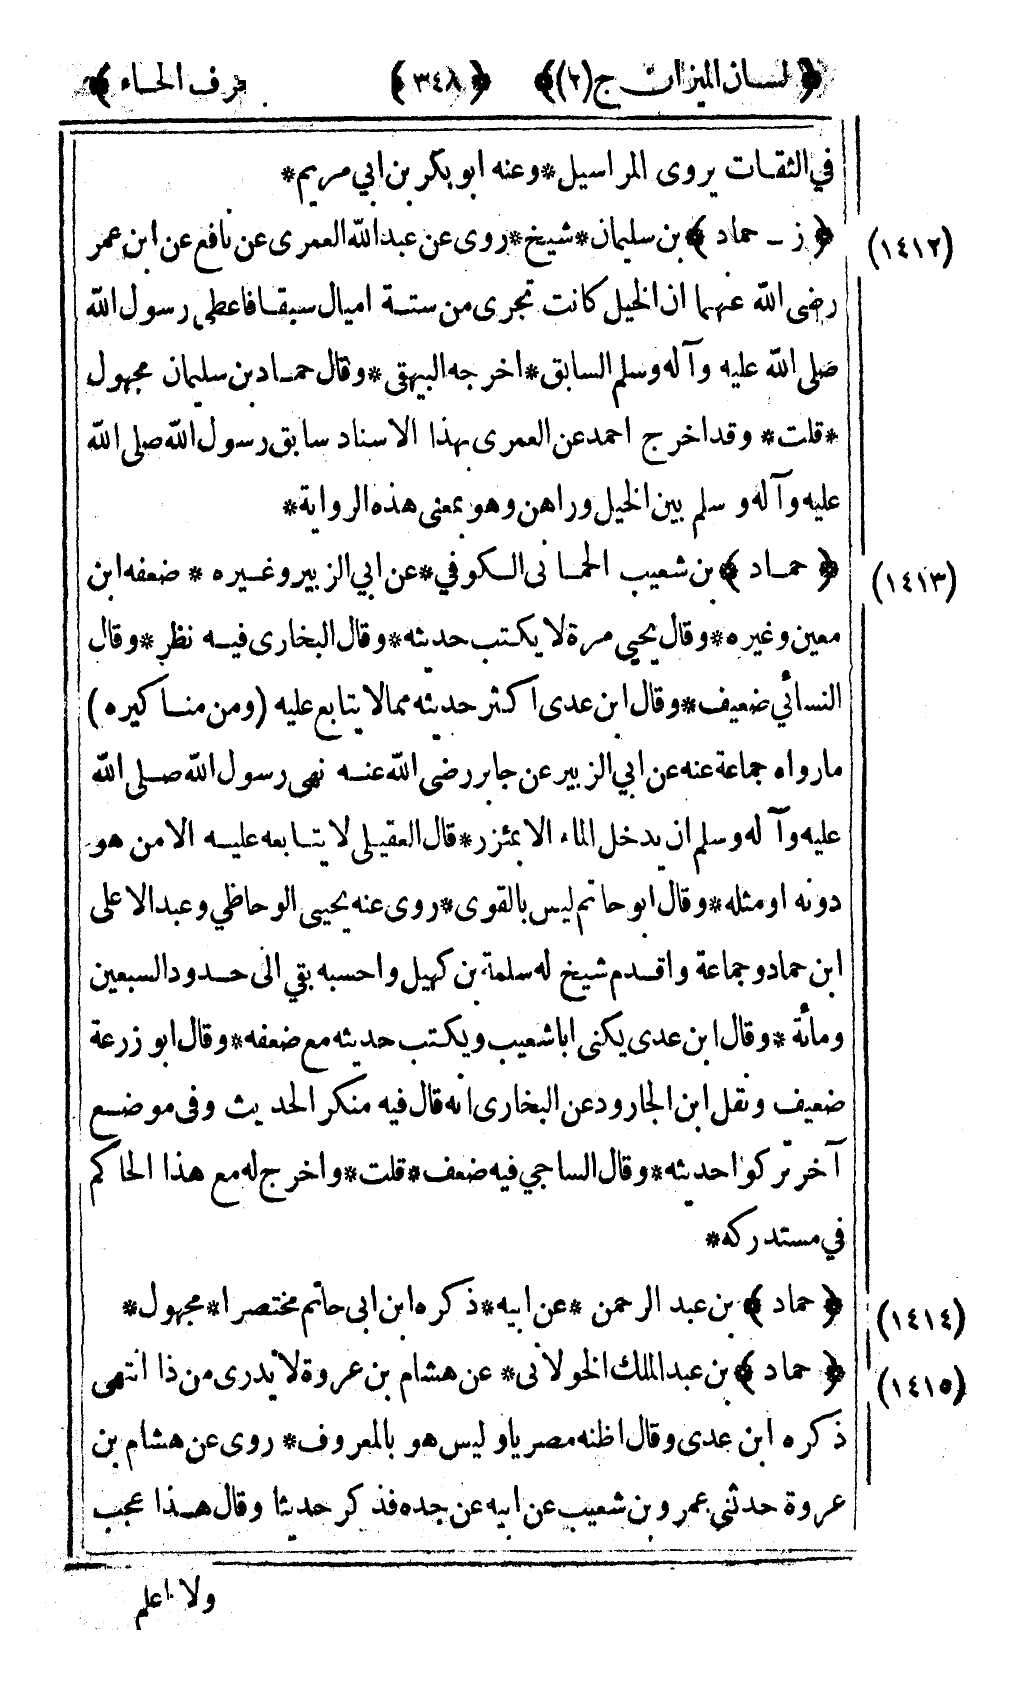 ﴿ لسان الميزان ج (٢) ﴾ ﴿ ٣٤٨ ﴾ ﴿ حرف الحاء ﴾
في الثقات يروى المراسيل * وعنه ابو بكر بن ابي مريم *
(١٤١٢) ﴿ ز ـ حماد ﴾ بن سليمان * شيخ * روى عن عبد الله العمرى عن نافع عن ابن عمر
رضى الله عنهما ان الخيل كانت تجرى من ستة اميال سبقا فاعطى رسول الله
صلى الله عليه وآله وسلم السابق * اخرجه البيهقى * وقال حماد بن سليمان مجهول
* قلت * وقد اخرج احمد عن العمرى بهذا الاسناد سابق رسول الله صلى الله
عليه وآله وسلم بين الخيل وراهن وهو بمعنى هذه الرواية *
(١٤١٣) ﴿ حماد ﴾ بن شعيب الحمانى الكوفي * عن ابي الزبير وغيره * ضعفه ابن
معين وغيره * وقال يحيى مرة لا يكتب حديثه * وقال البخارى فيه نظر * وقال
النسائي ضعيف * وقال ابن عدى اكثر حديثه مما لا يتابع عليه (ومن مناكيره)
مارواه جماعة عنه عن ابي الزبير عن جابر رضى الله عنه نهى رسول الله صلى الله
عليه وآله وسلم ان يدخل الماء الا بمئزر * قال العقيلى لا يتابعه عليه الا من هو
دونه او مثله * وقال ابو حاتم ليس بالقوى * روى عنه يحيى الوحاظي وعبد الاعلى
ابن حماد وجماعة واقدم شيخ له سلمة بن كهيل واحسبه بقي الى حدود السبعين
ومأئة * وقال ابن عدى يكنى ابا شعيب ويكتب حديثه مع ضعفه * وقال ابو زرعة
ضعيف ونقل ابن الجارود عن البخارى انه قال فيه منكر الحديث وفى موضع
آخر تركوا حديثه * وقال الساجي فيه ضعف * قلت * واخرج له مع هذا الحاكم
في مستدركه *
(١٤١٤) ﴿ حماد ﴾ بن عبد الرحمن * عن ابيه * ذكره ابن ابى حاتم مختصرا * مجهول *
(١٤١٥) ﴿ حماد ﴾ بن عبد الملك الخولانى * عن هشام بن عروة لا يدرى من ذا انتهى
ذكره ابن عدى وقال اظنه مصريا وليس هو بالمعروف * روى عن هشام بن
عروة حدثني عمرو بن شعيب عن ابيه عن جده فذكر حديثا وقال هذا عجب
ولا اعلم